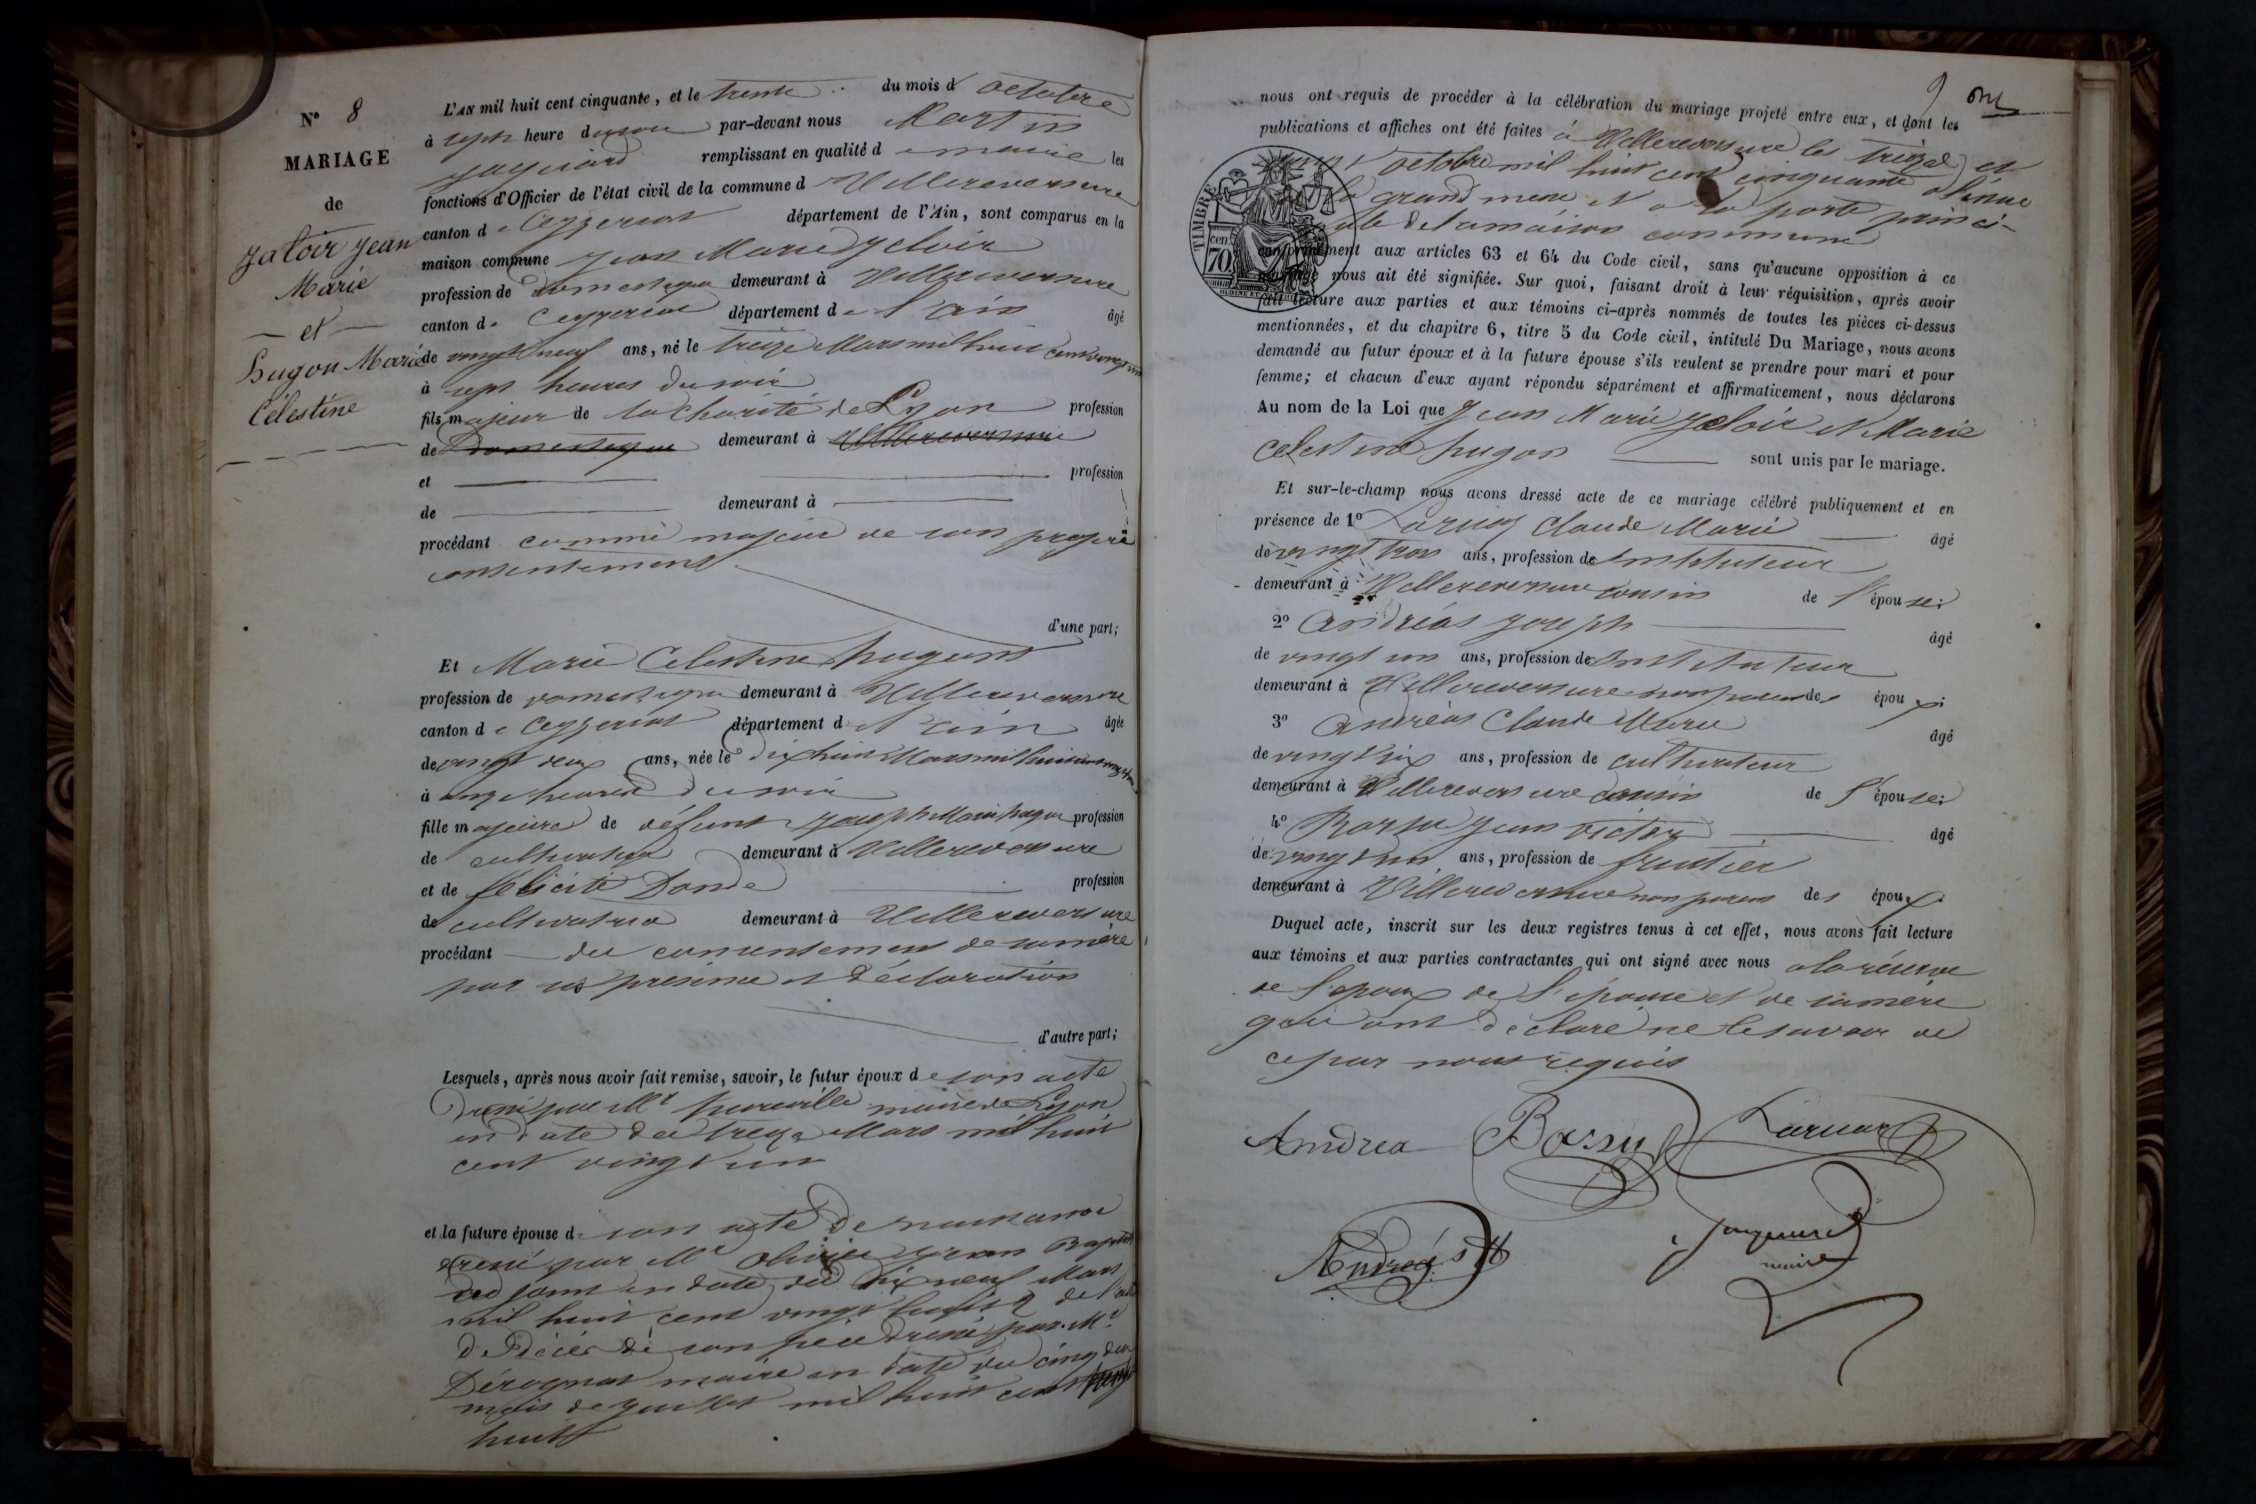 N° 8
MARIAGE
de
Jaloir Jean
Marie
et
hugon Marie
Célestine
L'AN mil huit cent cinquante, et le trente du mois d octobre
à sept heure du soir par-devant nous Martin
remplissant en qualité de maire les
fonctions d'Officier de l'état civil de la commune d Villereversure
canton de Ceyzeriat département de l'Ain, sont comparus en la
maison commune Jean Marie Jaloir
profession de domestique demeurant à Villereversure
canton de Ceyzeriat département de l'ain âgé
de vingt neuf ans, né le treize Mars mil huit cent vingt un
à sept heures du soir
fils majeur de la charité de Lyon profession
de Domestique demeurant à Villereversure
et profession
de demeurant à
procédant comme majeur de son propre
consentement
d'une part;
Et Marie Celestine hugon
profession de domestique demeurant à Villereversure
canton de Ceyzeriat département de l'ain âgée
de vingt deux ans, née le dix huit Mars mil huit cent vingt huit
à onze heures du soir
fille majeure de défunt Joseph Marie hugon profession
de cultivateur demeurant à Villereversure
et de félicité Donde profession
de cultivatrice demeurant à Villereversure
procédant du consentement de sa mère
par sa présence et déclaration
d'autre part;
Lesquels, après nous avoir fait remise, savoir, le futur époux de son acte
Dressé par Mr maire de Lyon
en date du treize Mars mil huit
cent vingt un
et la future épouse de son acte de naissance
dressé par Mr olivier Jean Baptiste
adjoint en date du dix neuf Mars
mil huit cent vingt huit et de l'acte
de Décès de son père dressé par Mr
Dérognat maire en date du cinq du
mois de Juillet mil huit cent
huit
9
nous ont requis de procéder à la célébration du mariage projeté entre eux, et dont les
publications et affiches ont été faites à Villereversure les treize et
vingt octobre mil huit cent cinquante à l'issue
de la grand messe et a la porte princi-
pale de la maison commune
conformément aux articles 63 et 64 du Code civil, sans qu'aucune opposition à ce
mariage nous ait été signifiée. Sur quoi, faisant droit à leur réquisition, après avoir
fait lecture aux parties et aux témoins ci-après nommés de toutes les pièces ci-dessus
mentionnées, et du chapitre 6, titre 5 du Code civil, intitulé Du Mariage, nous avons
demandé au futur époux et à la future épouse s'ils veulent se prendre pour mari et pour
femme; et chacun d'eux ayant répondu séparément et affirmativement, nous déclarons
Au nom de la Loi que Jean Marie Jaloir et Marie
Celestine hugon sont unis par le mariage.
Et sur-le-champ nous avons dressé acte de ce mariage célébré publiquement et en
présence de 1° Claude Marie âgé
de vingt trois ans, profession de Instituteur
demeurant à Villereversure cousin de l'épouse;
2° Andréas Joseph âgé
de vingt un ans, profession de Instituteur
demeurant à Villereversure non parent des époux;
3° Andréas Claude Marie âgé
de vingt six ans, profession de cultivateur
demeurant à Villereversure cousin de l'épouse;
4° Bossu Jean victor âgé
de vingt un ans, profession de fruitier
demeurant à Villereversure non parent des époux.
Duquel acte, inscrit sur les deux registres tenus à cet effet, nous avons fait lecture
aux témoins et aux parties contractantes qui ont signé avec nous a la réserve
de l'époux de l'épouse et de sa mère
qui ont déclaré ne le savoir de
ce par nous requis
Andrea Bossu
Andréas
maire
TIMBRE
cen. 70